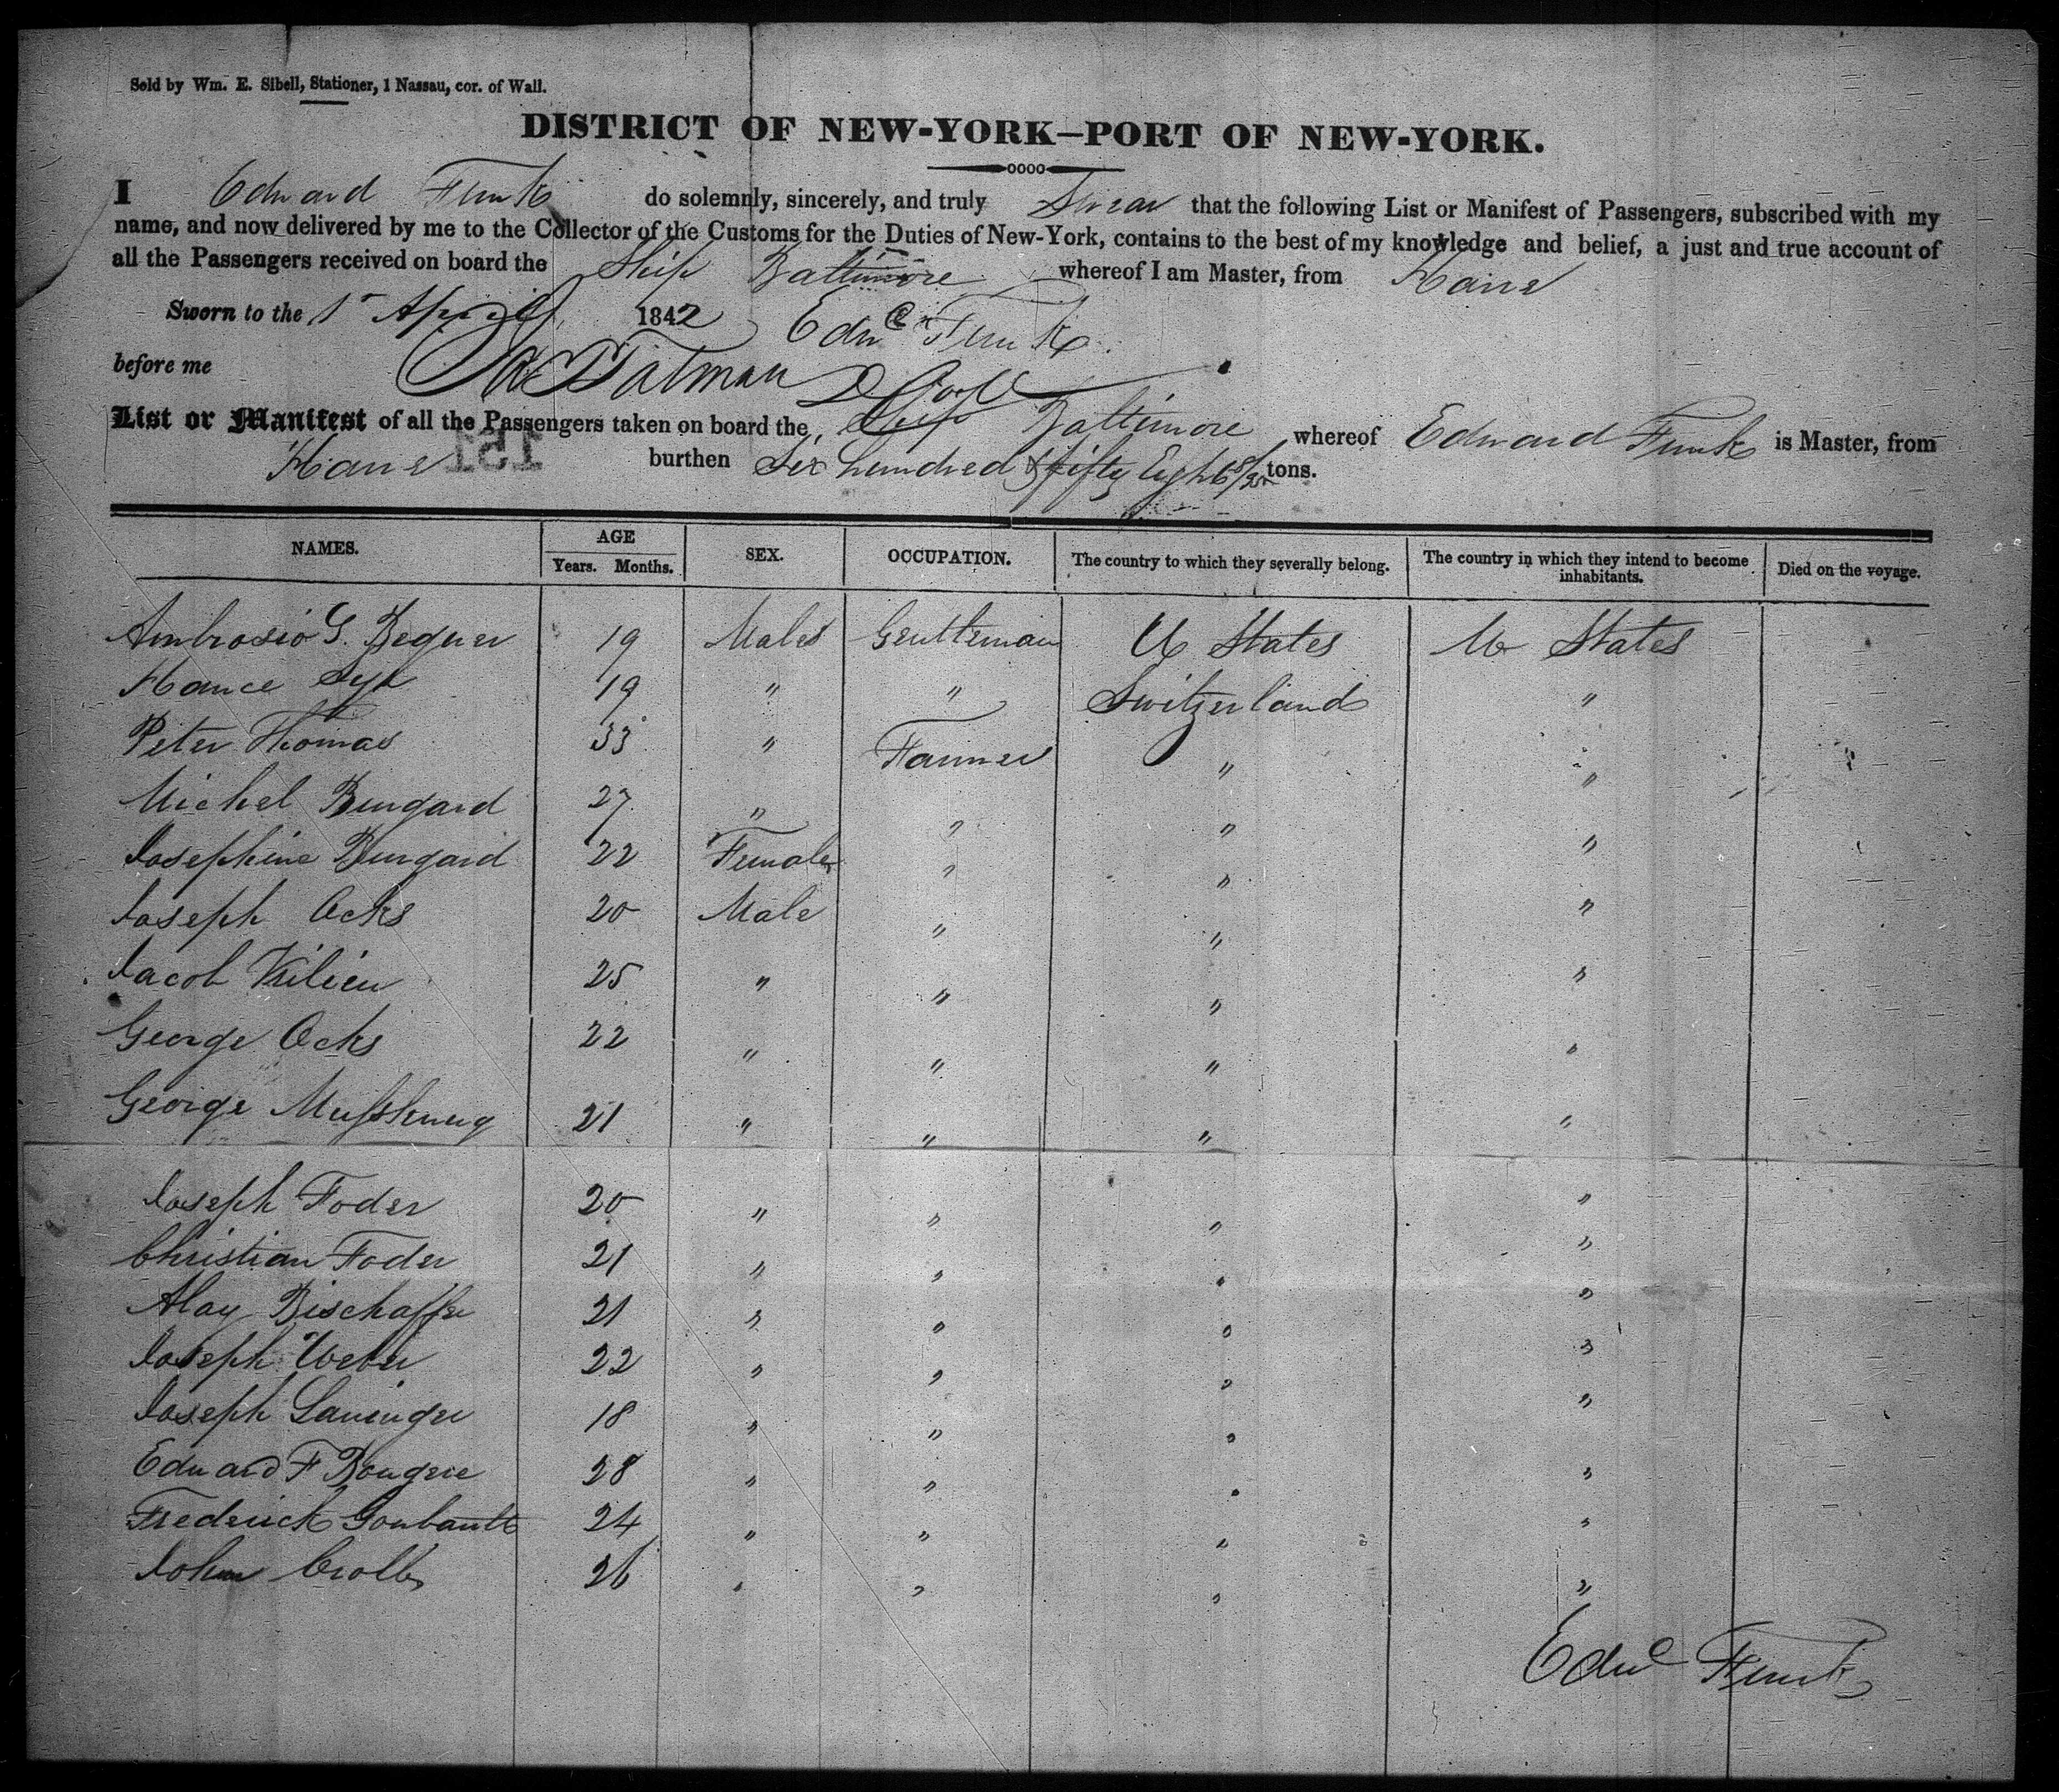 Sold by Wm. E. Sibell, Stationer, 1 Nassau, cor. of Wall.
DISTRICT OF NEW-YORK—PORT OF NEW-YORK.
I Edward Funk do solemnly, sincerely, and truly Swear that the following List or Manifest of Passengers, subscribed with my
name, and now delivered by me to the Collector of the Customs for the Duties of New-York, contains to the best of my knowledge and belief, a just and true account of
all the Passengers received on board the Ship Baltimore whereof I am Master, from Havre
Sworn to the 1st April 1842 Edwd Funk
before me
List or Manifest of all the Passengers taken on board the Ship Baltimore whereof Edward Funk is Master, from
Havre 151 burthen Six hundred & fifty Eight tons.
NAMES. AGE Years. Months. SEX. OCCUPATION. The country to which they severally belong. The country in which they intend to become inhabitants. Died on the voyage.
Ambrosio G. Bequer 19 Males Gentleman U States U States
Hance 19 " " Switzerland "
Peter Thomas 33 " Farmer " "
Michel Bungard 27 " " " "
Josephine Bungard 22 Female " " "
Joseph Ocks 20 Male " " "
Jacob Kilien 25 " " " "
George Ocks 22 " " " "
George 21 " " " "
Joseph Foder 20 " " " "
Christian Foder 21 " " " "
Aloy 21 " " " "
Joseph Weber 22 " " " "
Joseph Laninger 18 " " " "
Edward F 28 " " " "
Frederick 24 " " " "
John 26 " " " "
Edwd Funk